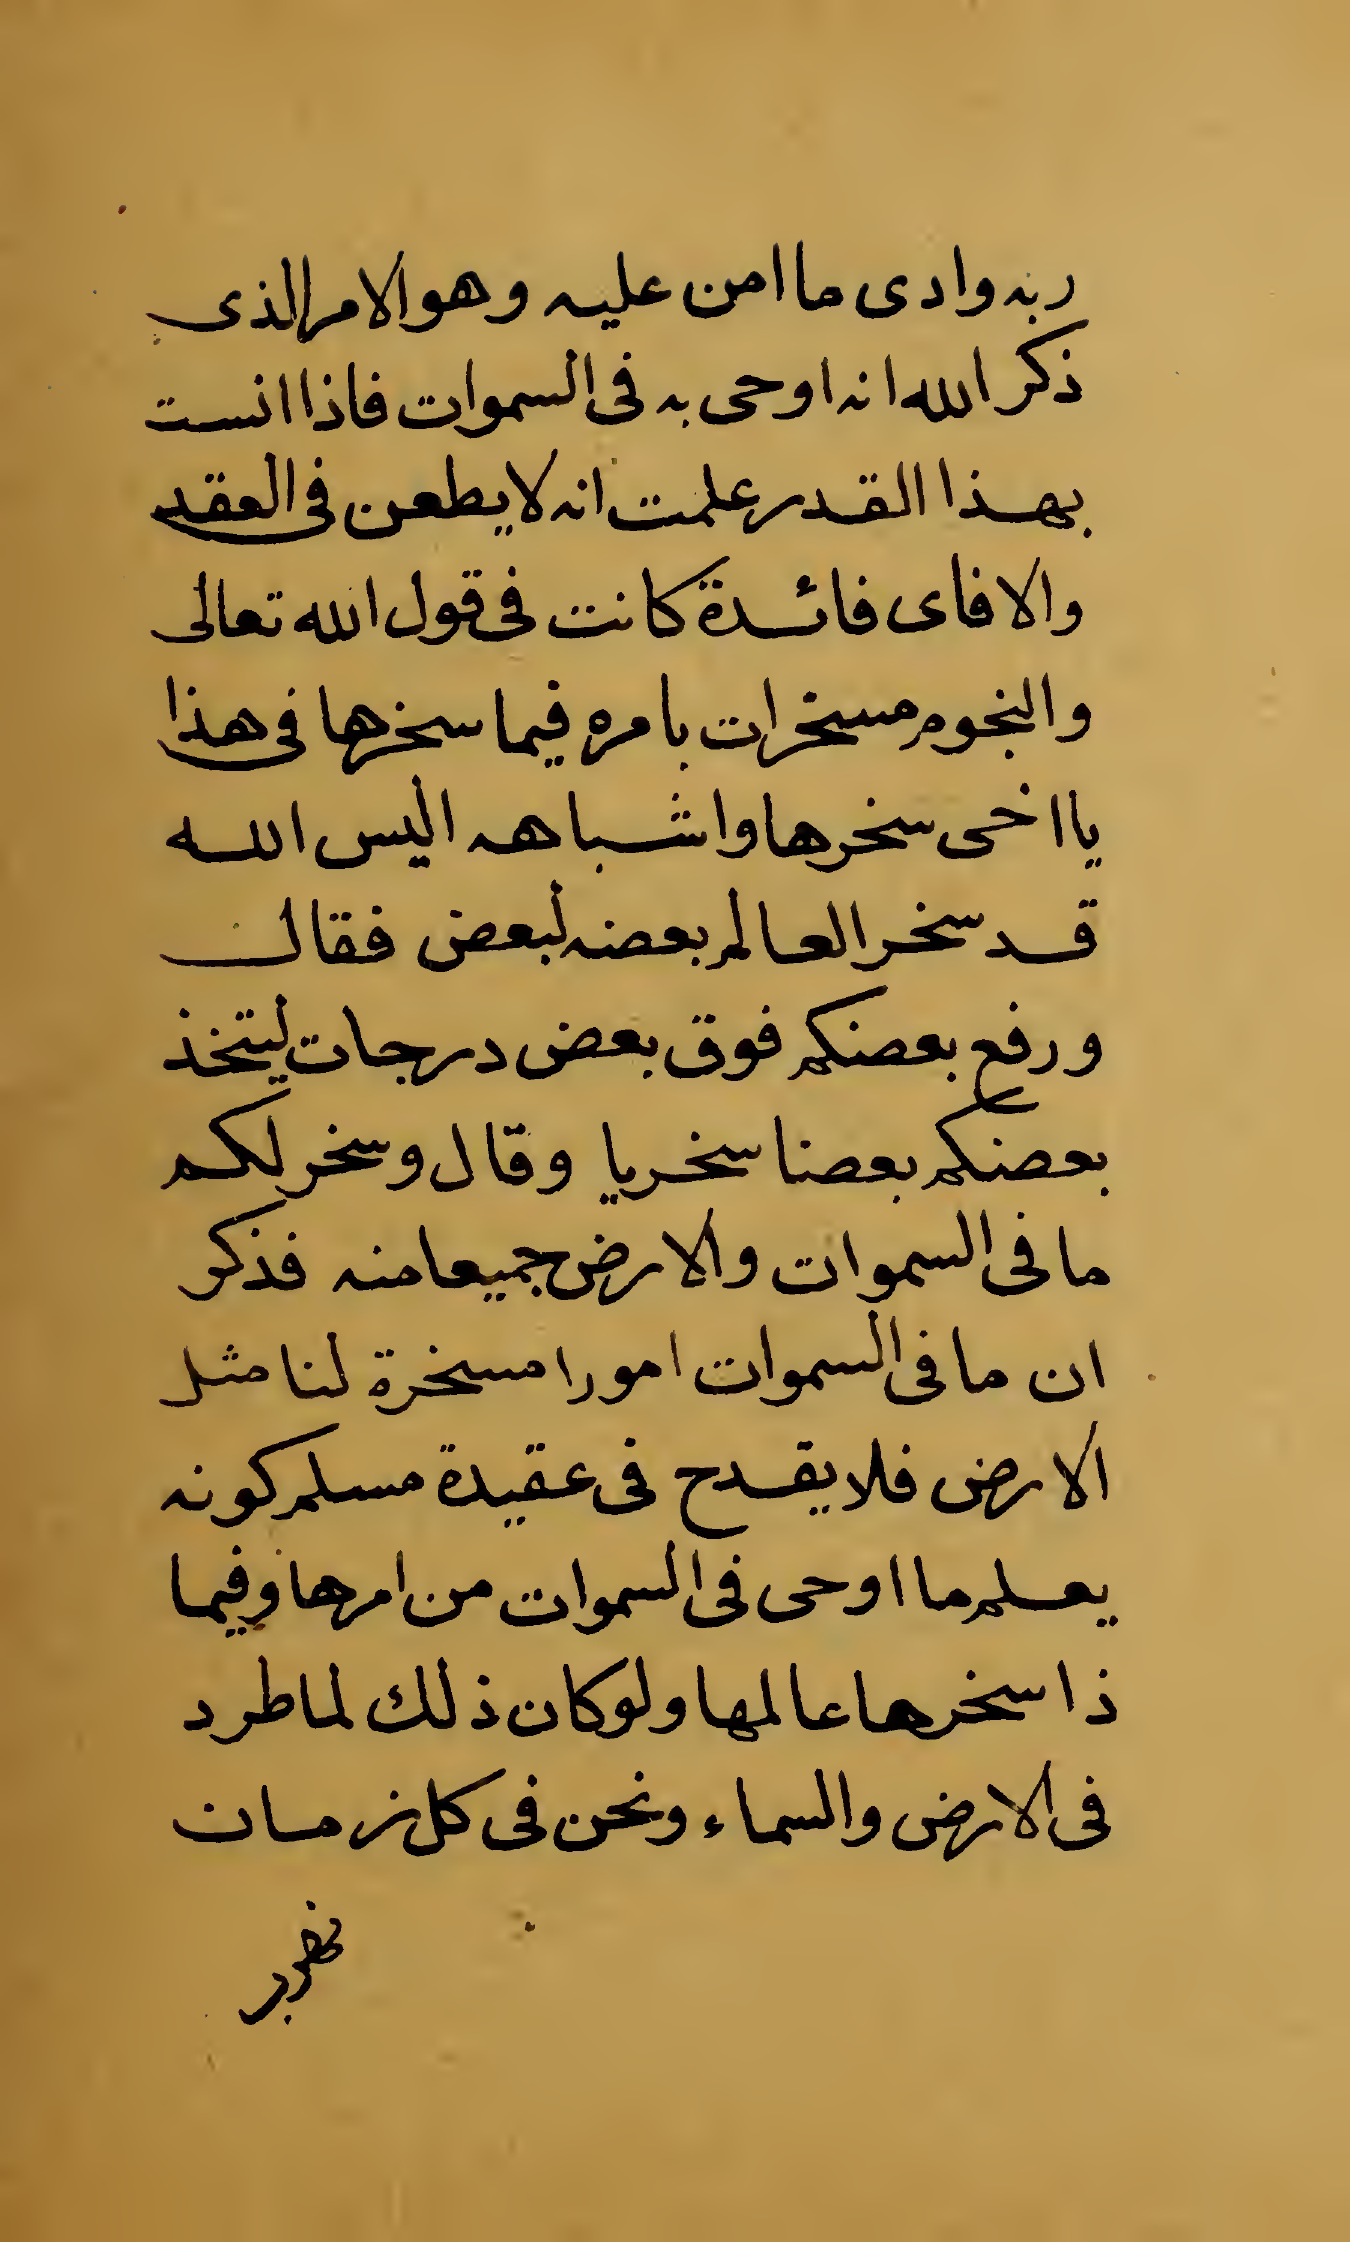 ربه وادى ما امن عليه وهو الامر الذى
ذكر الله انه اوحى به فى السموات فاذا انست
بهذا القدر علمت انه لا يطعن فى العقد
والا فاى فائدة كانت فى قول الله تعالى
والنجوم مسخرات بامره فيما سخرها فى هذا
يا اخى سخرها واشباهه اليس الله
قد سخر العالم بعضه لبعض فقال
ورفع بعضكم فوق بعض درجات ليتخذ
بعضكم بعضا سخريا وقال وسخر لكم
ما فى السموات والارض جميعا منه فذكر
ان ما فى السموات امورا مسخرة لنا مثل
الارض فلا يقدح فى عقيدة مسلم كونه
يعلم ما اوحى فى السموات من امرها وفيما
ذا سخرها عالمها ولو كان ذلك لما طرد
فى الارض والسماء ونحن فى كل زمان